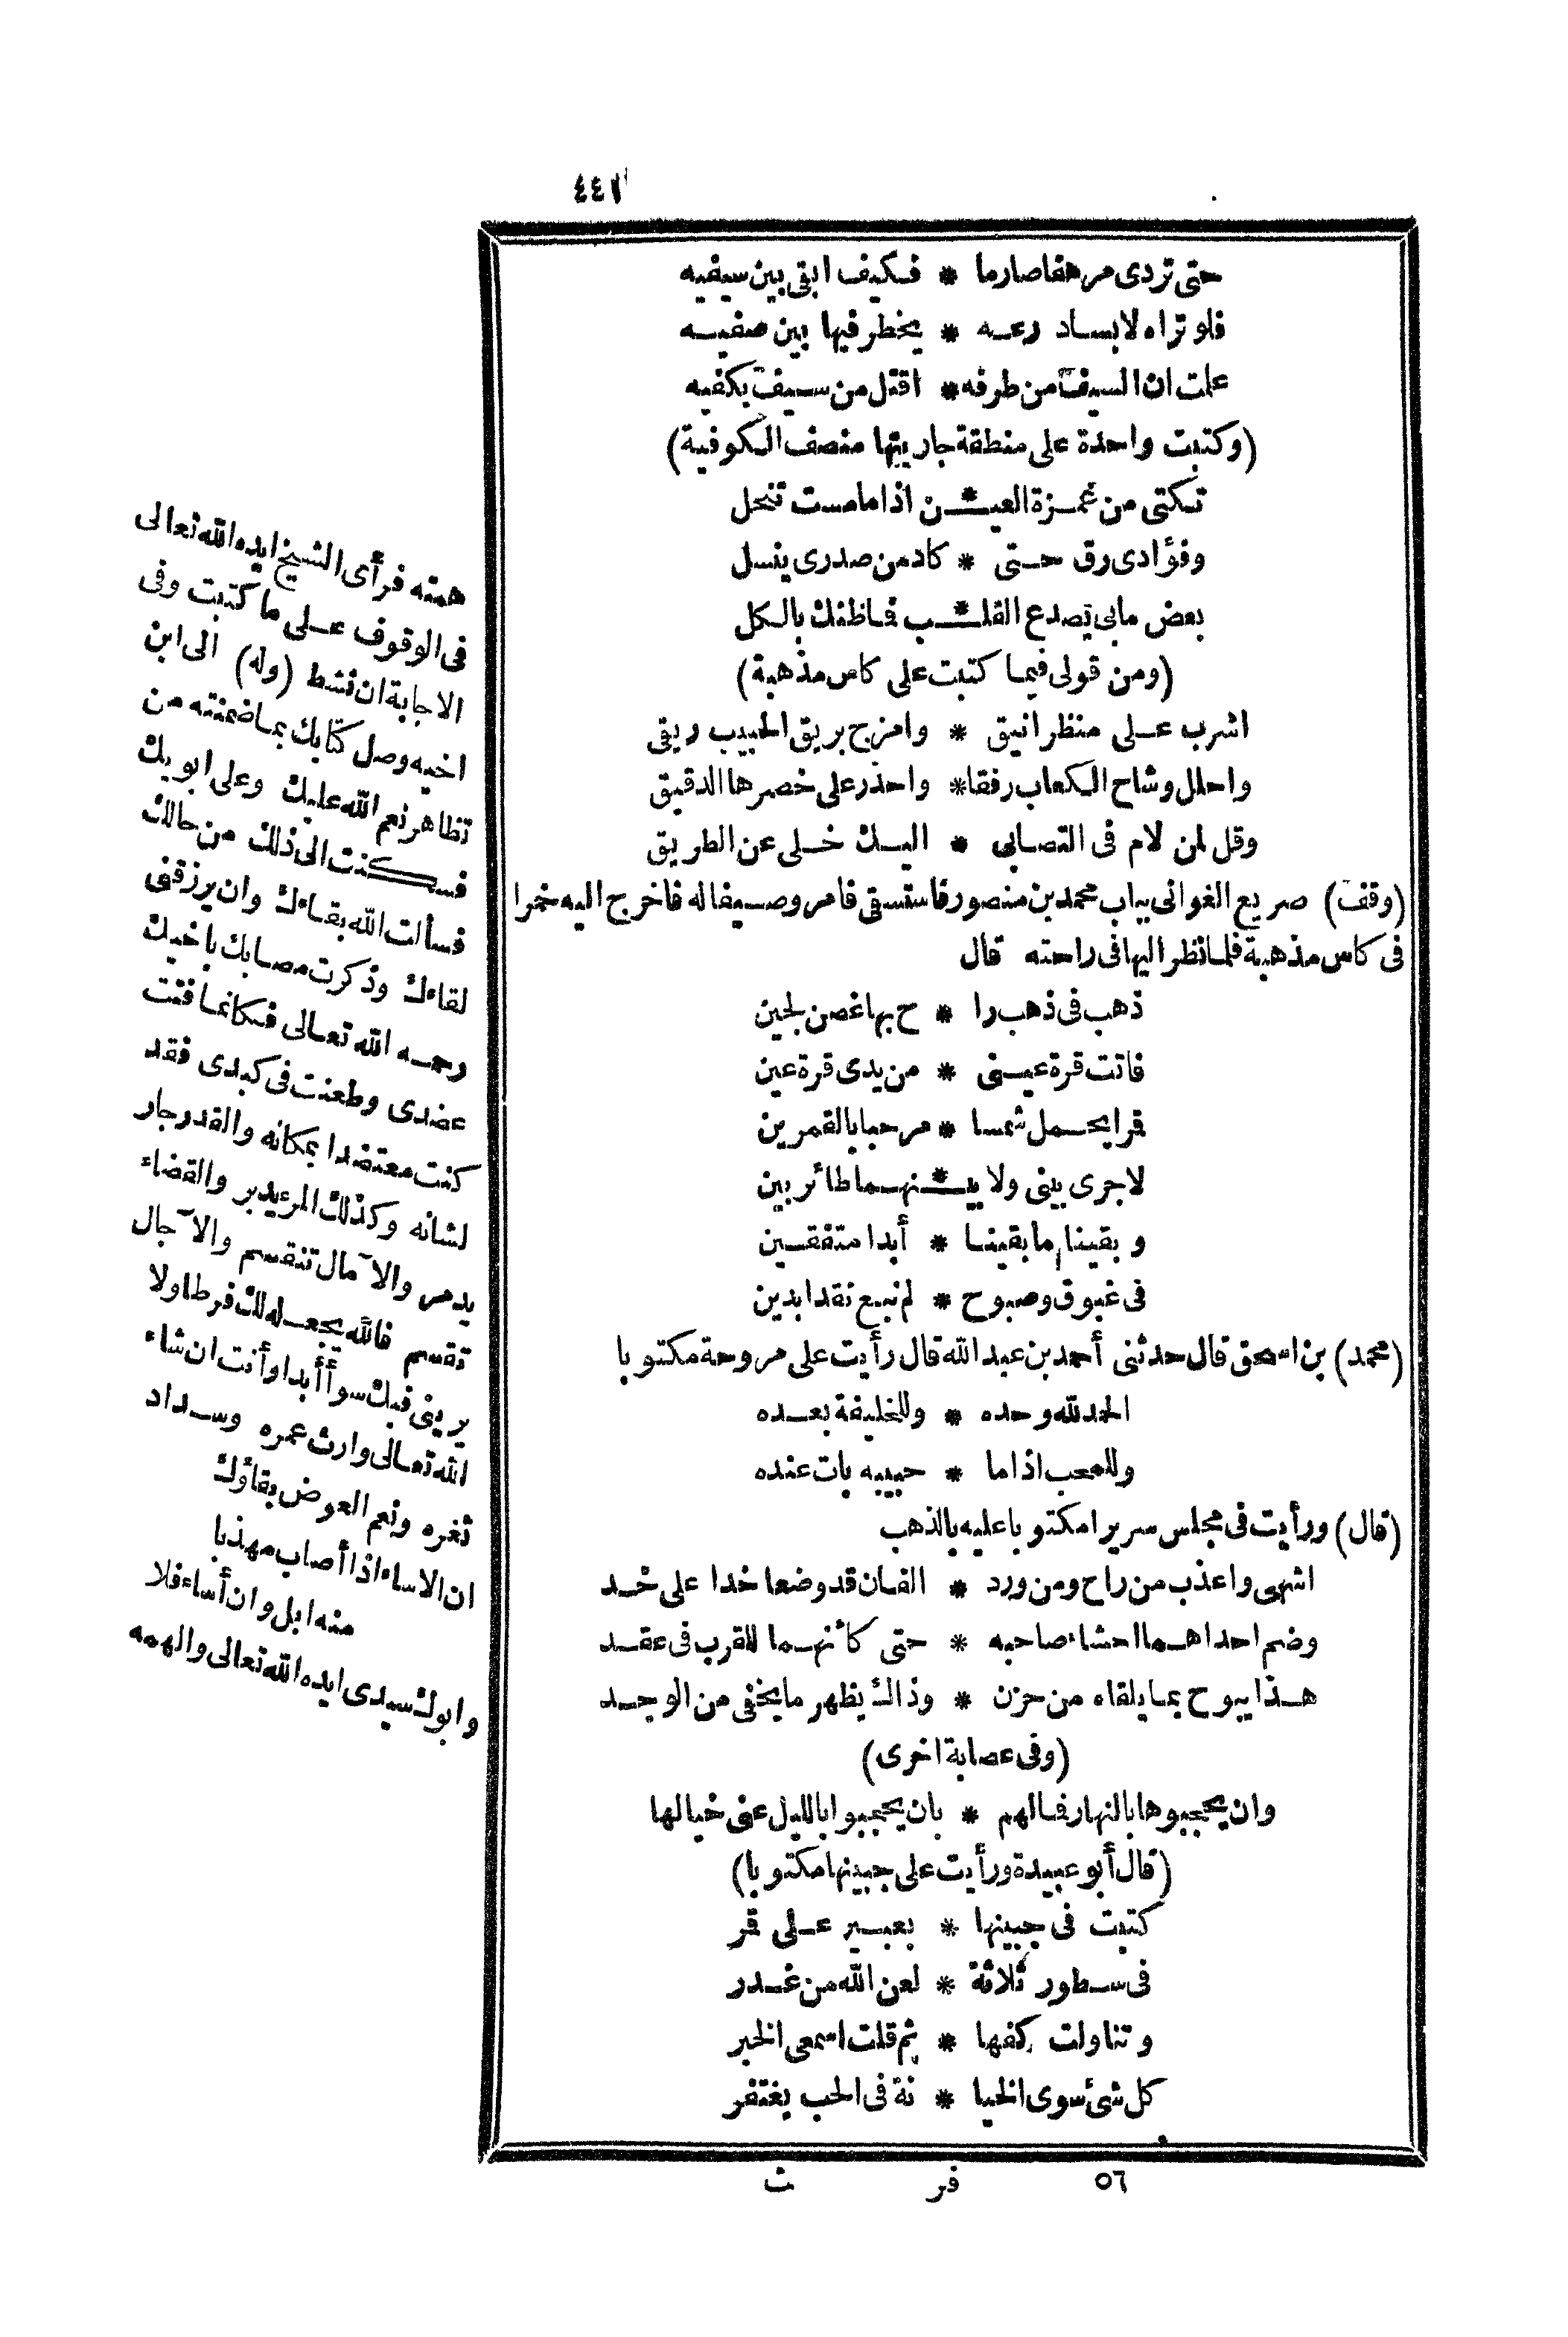 ٤٤١
حتى تردى مرهفا صارما * فكيف ابقى بين سيفيه
فلو تراه لابسا درعه * يخطر فيها بين صفيه
علمت ان السيف من طرفه * اقتل من سيف بكفيه
(وكتبت واحدة على منطقة جاريتها منصف الكوفية)
تكتى من غمزة العيـ * ـن اذا ما مست تنحل
وفؤادى رق حتى * كاد من صدرى ينسل
بعض ما بى يصدع القلـ * ـب فاظنك بالكل
(ومن قولى فيما كتبت على كاس مذهبة)
اشرب على منظر انيق * وامزج بريق الحبيب ريقى
واحلل وشاح الكعاب رفقا * واحذر على خصرها الدقيق
وقل لمن لام فى التصابى * اليك خلى عن الطريق
(وقف) صريع الغوانى بباب محمد بن منصور فاستسقى فامر وصيفا له فاخرج اليه خمرا
فى كاس مذهبة فلما نظر اليها فى راحته قال
ذهب فى ذهب را * ح بها غصن لجين
فاتت قرة عينى * من يدى قرة عين
قمرا يحمل شمسا * مرحبا بالقمرين
لا جرى بينى ولا بيـ * ـنهما طائر بين
وبقينا ما بقينا * أبدا متفقين
فى غبوق وصبوح * لم نبع نقدا بدين
(محمد) بن اسحق قال حدثنى أحمد بن عبد الله قال رأيت على مروحة مكتوبا
الحمد لله وحده * وللخليفة بعده
وللمحب اذا ما * حبيبه بات عنده
(قال) ورأيت فى مجلس سريرا مكتوبا عليه بالذهب
اشهى واعذب من راح ومن ورد * الفان قد وضعا خدا على خد
وضم احداهما احشاء صاحبه * حتى كأنهما للقرب فى عقد
هذا يبوح بما يلقاه من حزن * وذاك يظهر ما يخفى من الوجد
(وفى عصابة اخرى)
وان يحجبوها بالنهار فما لهم * بان يحجبوا بالليل عنى خيالها
(قال أبو عبيدة ورأيت على جبينها مكتوبا)
كتبت فى جبينها * بعبير على قمر
فى سطور ثلاثة * لعن الله من غدر
وتناولت كفها * ثم قلت اسمعى الخبر
كل شئ سوى الخيا * نة فى الحب يغتفر
٥٦ فر ث
همته فرأى الشيخ ايده الله تعالى
فى الوقوف على ما كتبت وفى
الاجابة ان نشط (وله) الى ابن
اخيه وصل كتابك بما ضمنته من
تظاهر نعم الله عليك وعلى ابويك
فسكنت الى ذلك من حالك
فسألت الله بقاءك وان يرزقنى
لقاءك وذكرت مصابك باخيك
رحمه الله تعالى فكانما فتت
عضدى وطعنت فى كبدى فقد
كنت معتضدا بمكانه والقدر جار
لشانه وكذلك المرء يدبر والقضاء
يدمر والآمال تنقسم والآجال
تقسم فالله يجعله لك فرطا ولا
يرينى فيك سوأ أبدا وأنت ان شاء
الله تعالى وارث عمره وسداد
ثغره ونعم العوض بقاؤك
ان الاساء اذا أصاب مهذبا
منه ابل وان أساء فلا
وابوك سيدى ايده الله تعالى والهمه